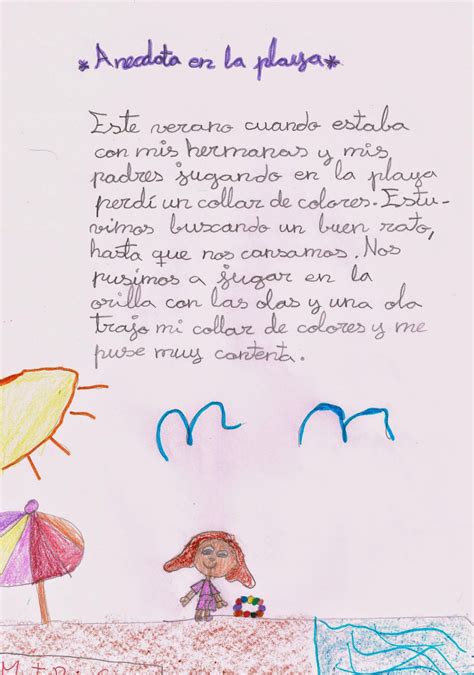 *Anecdota en la playa*
Este verano cuando estaba
con mis hermanas y mis
padres jugando en la playa
perdí un collar de colores. Estu-
vimos buscando un buen rato,
hasta que nos cansamos. Nos
pusimos a jugar en la
orilla con las olas y una ola
trajo mi collar de colores y me
puse muy contenta.